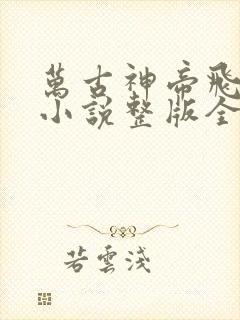 萬古神帝飛
小說整版全
若雲淺